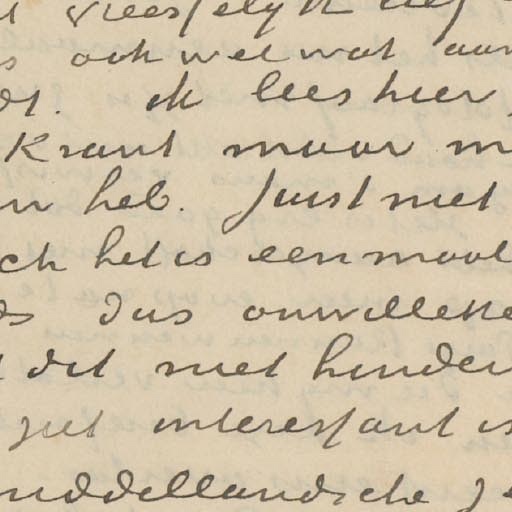 vreeslyk
ook wel wat aan
dt. ik lees hier
Krant maar m
heb. Juist niet
ch het is eenmaal
ds dus onwilleke
dit niet hinder
get interessant is
middellandsche Z